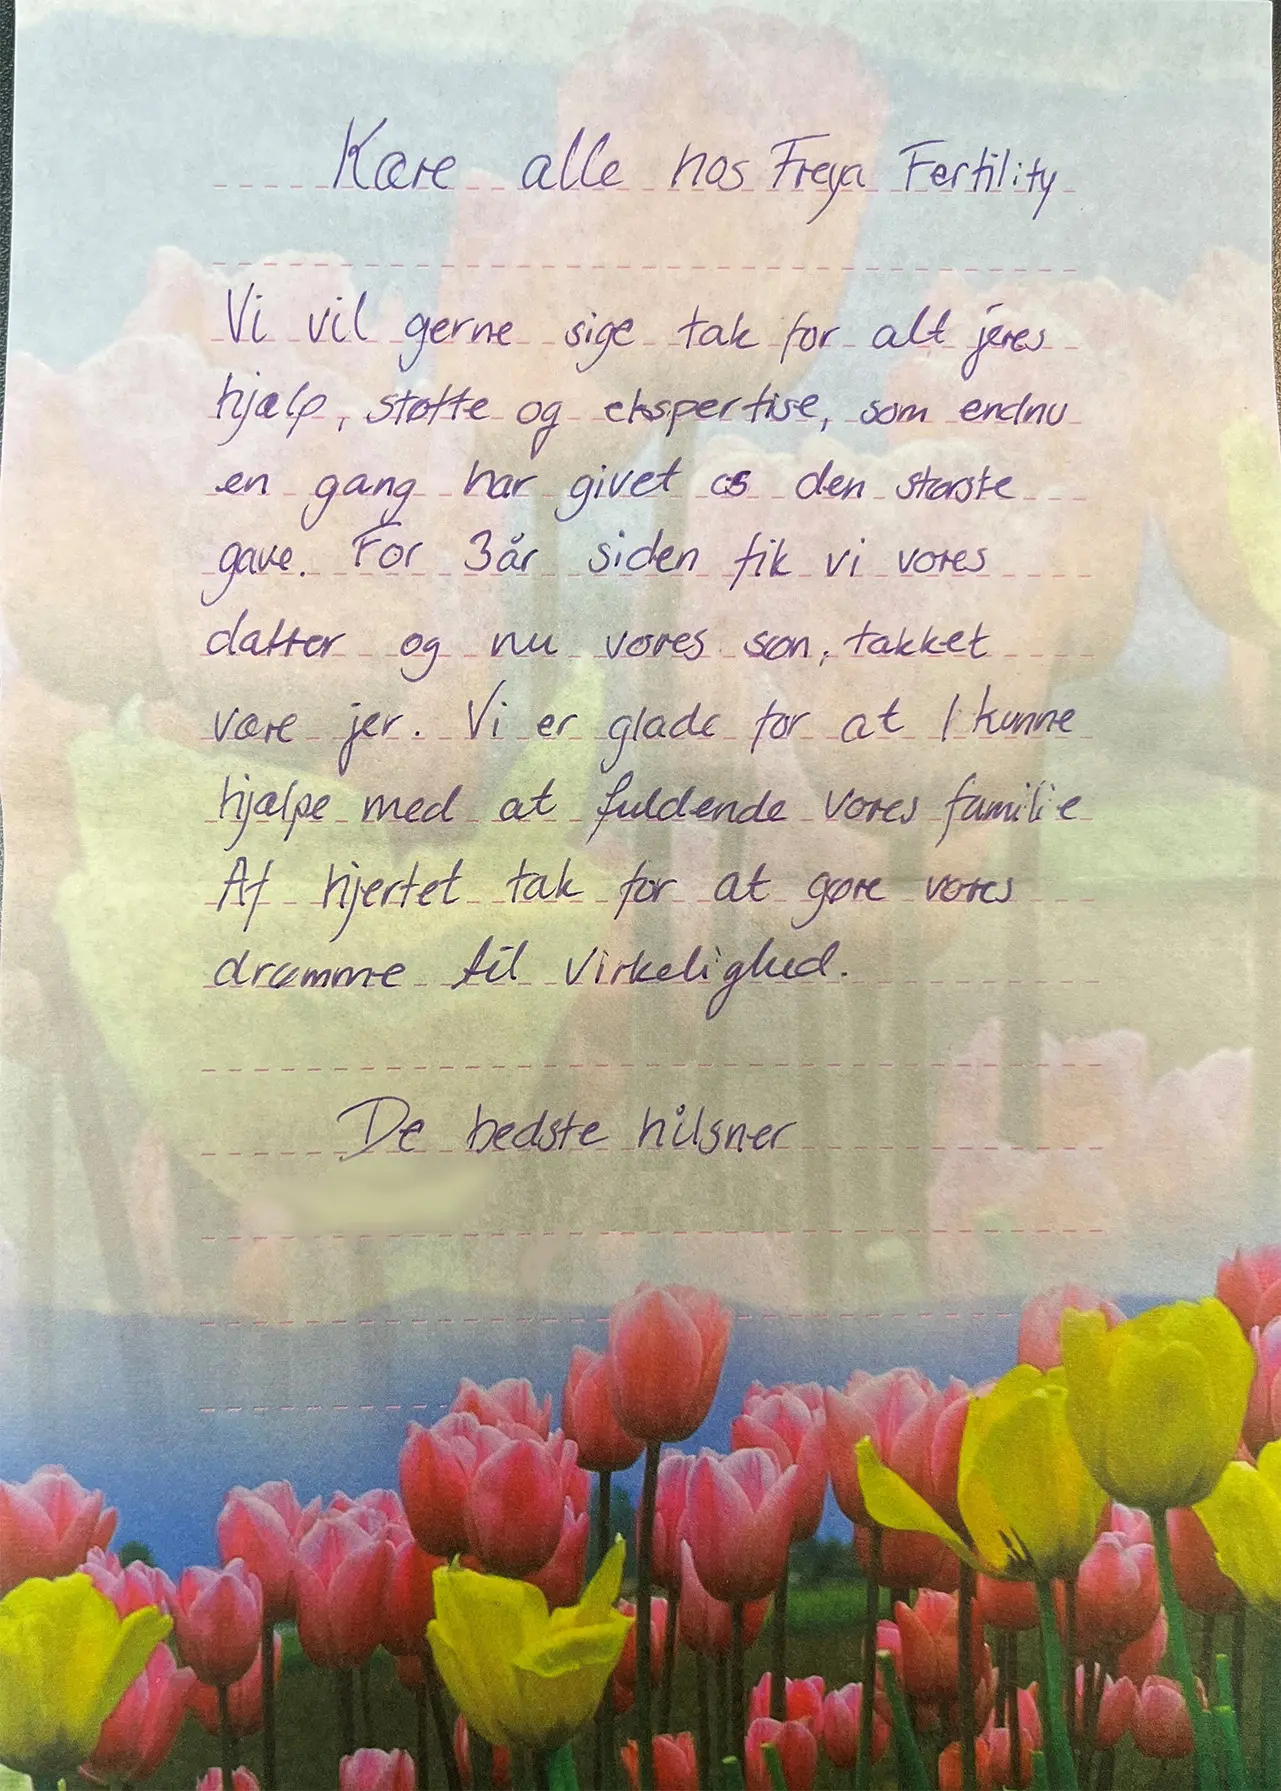 Kære alle hos Freya Fertility
Vi vil gerne sige tak for alt jeres
hjælp, støtte og ekspertise, som endnu
en gang har givet os den største
gave. For 3 år siden fik vi vores
datter og nu vores søn, takket
være jer. Vi er glade for at I kunne
hjælpe med at fuldende vores familie
Af hjertet tak for at gøre vores
drømme til virkelighed.
De bedste hilsner